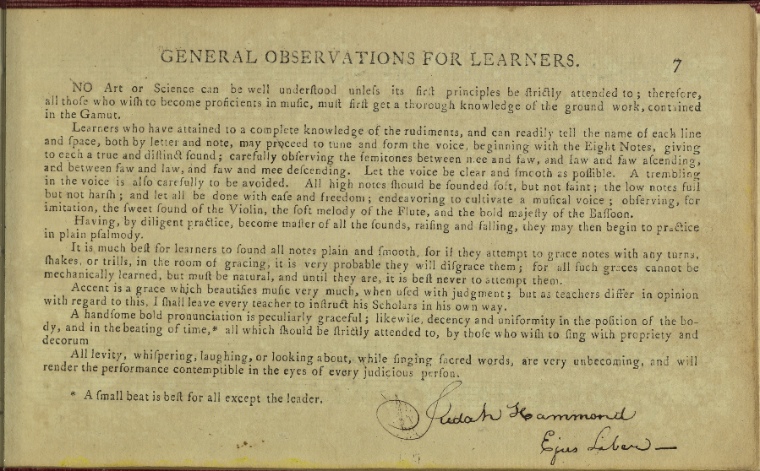 GENERAL OBSERVATIONS FOR LEARNERS. 7
NO Art or Science can be well underſtood unleſs its firſt principles be ſtrictly attended to; therefore,
all thoſe who wiſh to become proficients in muſic, muſt firſt get a thorough knowledge of the ground work, contained
in the Gamut.
Learners who have attained to a complete knowledge of the rudiments, and can readily tell the name of each line
and ſpace, both by letter and note, may proceed to tune and form the voice, beginning with the Eight Notes, giving
to each a true and diſtinct ſound; carefully obſerving the ſemitones between mee and faw, and law and faw aſcending,
and between faw and law, and faw and mee deſcending. Let the voice be clear and ſmooth as poſſible. A trembling
in the voice is alſo carefully to be avoided. All high notes ſhould be ſounded ſoft, but not faint; the low notes full
but not harſh; and let all be done with eaſe and freedom; endeavoring to cultivate a muſical voice; obſerving, for
imitation, the ſweet ſound of the Violin, the ſoft melody of the Flute, and the bold majeſty of the Baſſoon.
Having, by diligent practice, become maſter of all the ſounds, raiſing and falling, they may then begin to practice
in plain pſalmody.
It is much beſt for learners to ſound all notes plain and ſmooth, for if they attempt to grace notes with any turns,
ſhakes, or trills, in the room of gracing, it is very probable they will diſgrace them; for all ſuch graces cannot be
mechanically learned, but muſt be natural, and until they are, it is beſt never to attempt them.
Accent is a grace which beautifies muſic very much, when uſed with judgment; but as teachers differ in opinion
with regard to this, I ſhall leave every teacher to inſtruct his Scholars in his own way.
A handſome bold pronunciation is peculiarly graceful; likewiſe, decency and uniformity in the poſition of the bo-
dy, and in the beating of time,* all which ſhould be ſtrictly attended to, by thoſe who wiſh to ſing with propriety and
decorum
All levity, whiſpering, laughing, or looking about, while ſinging ſacred words, are very unbecoming, and will
render the performance contemptible in the eyes of every judicious perſon.
* A ſmall beat is beſt for all except the leader.
Judah Hammond
Ejus Liber